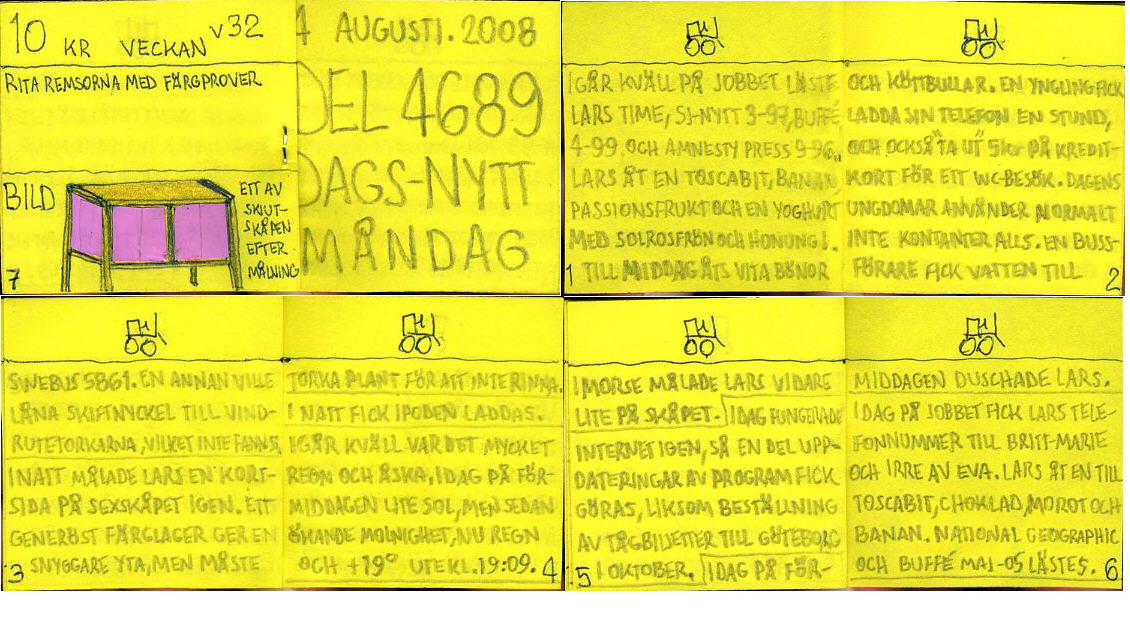 10 KR VECKAN V32
RITA REMSORNA MED FÄRGPROVER
BILD
ETT AV
SKJUT-
SKÅPEN
EFTER
MÅLNING
7
4 AUGUSTI. 2008
DEL 4689
DAGS-NYTT
MÅNDAG
I GÅR KVÄLL PÅ JOBBET LÄSTE
LARS TIME, SJ-NYTT 3-97, BUFFÉ
4-99 OCH AMNESTY PRESS 9-96.
LARS ÅT EN TOSCABIT, BANAN,
PASSIONSFRUKT OCH EN YOGHURT
MED SOLROSFRÖN OCH HONUNG I.
TILL MIDDAG ÅTS VITA BÖNOR
1
OCH KÖTTBULLAR. EN YNGLING FICK
LADDA SIN TELEFON EN STUND,
OCH OCKSÅ "TA UT" 5kr PÅ KREDIT-
KORT FÖR ETT WC-BESÖK. DAGENS
UNGDOMAR ANVÄNDER NORMALT
INTE KONTANTER ALLS. EN BUSS-
FÖRARE FICK VATTEN TILL
2
SWEBUS 5861. EN ANNAN VILLE
LÅNA SKIFTNYCKEL TILL VIND-
RUTETORKARNA, VILKET INTE FANNS.
I NATT MÅLADE LARS EN KORT-
SIDA PÅ SEXSKÅPET IGEN. ETT
GENERÖST FÄRGLAGER GER EN
SNYGGARE YTA, MEN MÅSTE
3
TORKA PLANT FÖR ATT INTE RINNA.
I NATT FICK IPODEN LADDAS.
IGÅR KVÄLL VAR DET MYCKET
REGN OCH ÅSKA. IDAG PÅ FÖR-
MIDDAGEN LITE SOL, MEN SEDAN
ÖKANDE MOLNIGHET, NU REGN
OCH +19° UTE KL. 19:09.
4
I MORSE MÅLADE LARS VIDARE
LITE PÅ SKÅPET. IDAG FUNGERADE
INTERNET IGEN, SÅ EN DEL UPP-
DATERINGAR AV PROGRAM FICK
GÖRAS, LIKSOM BESTÄLLNING
AV TÅGBILJETTER TILL GÖTEBORG
I OKTOBER. IDAG PÅ FÖR-
5
MIDDAGEN DUSCHADE LARS.
IDAG PÅ JOBBET FICK LARS TELE-
FONNUMMER TILL BRITT-MARIE
OCH IRRE AV EVA. LARS ÅT EN TILL
TOSCABIT, CHOKLAD, MOROT OCH
BANAN. NATIONAL GEOGRAPHIC
OCH BUFFÉ MAJ-05 LÄSTES.
6